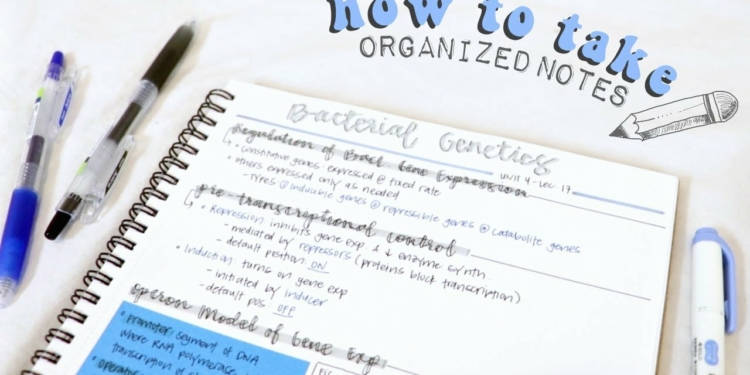 how to take
ORGANIZED NOTES
Bacterial Genetics
unit 4 - Lec 17
Regulation of Bact Gene Expression
• constitutive genes expressed @ fixed rate
• others expressed only as needed
- TYPES ① inducible genes ② repressible genes ③ catabolite genes
pre transcriptional control
• Repression inhibits gene exp & ↓ enzyme synth.
- mediated by repressors (proteins block transcription)
- default position: ON
• Induction: turns on gene exp
- initiated by inducer
- default pos: OFF
Operon Model of Gene Exp
• promoter: segment of DNA
where RNA polymerase
transcription of
• operator